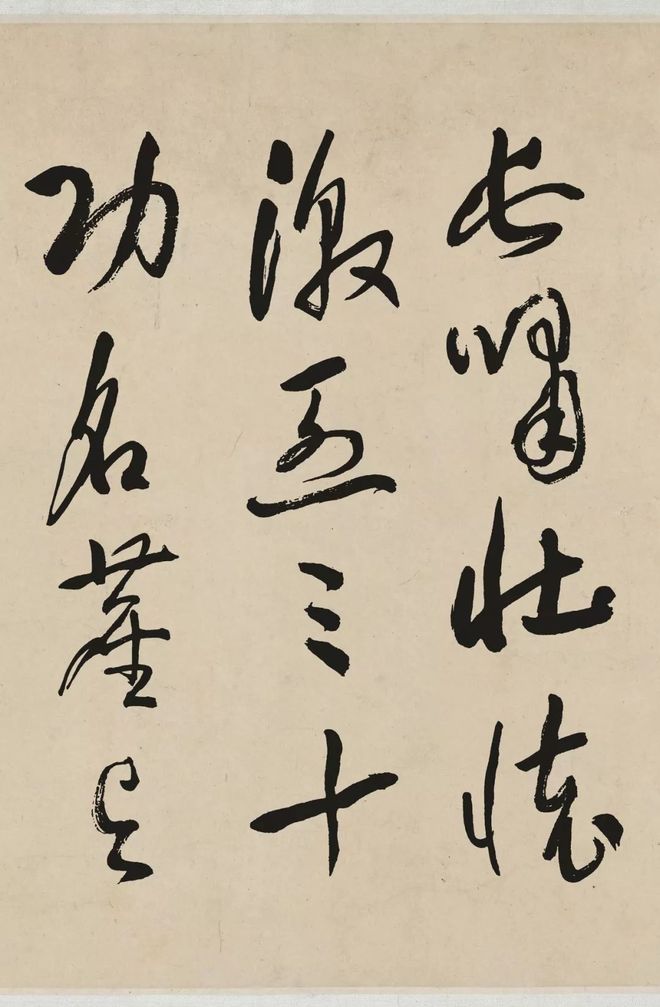 长啸壮怀
激烈三十
功名尘与